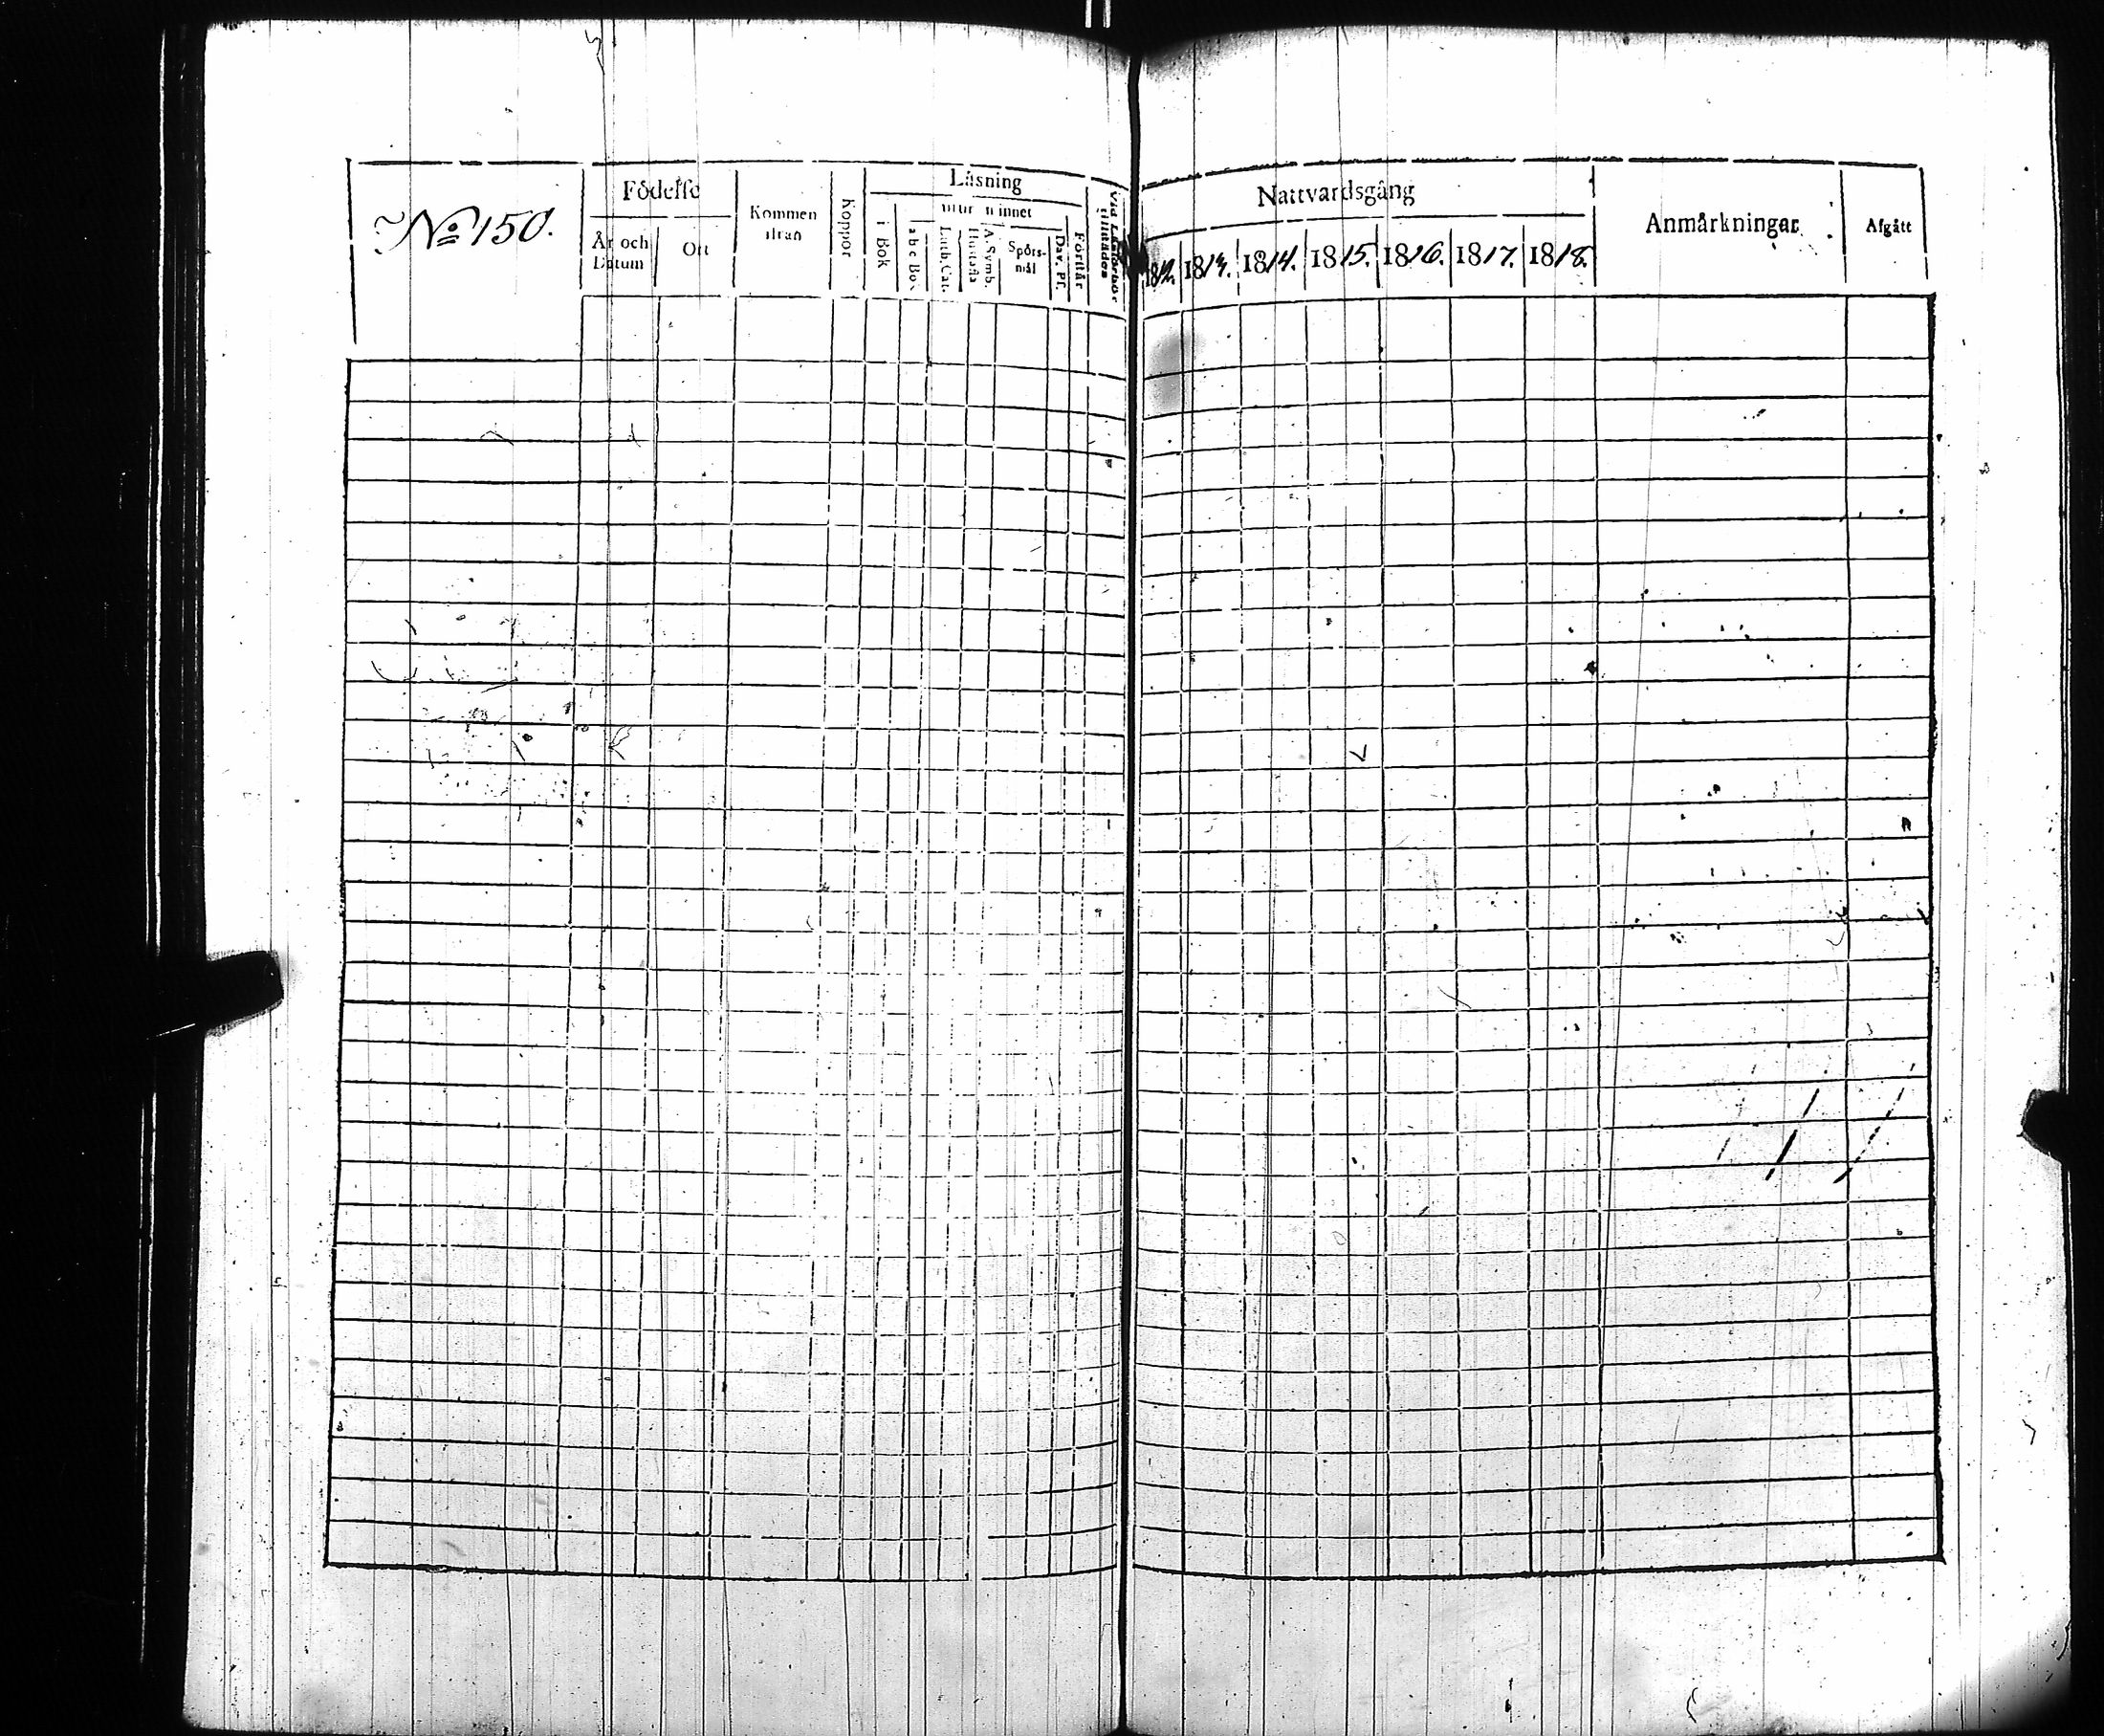 No 150.
Födelse
År och Datum
Ort
Kommen ifrån
Koppor
Läsning
i Bok
utur minnet
abc Bok
Luth. Cat.
Hustafla
A. Symb.
Spörs-mål
Dav. Ps.
Förstår
Nattvardsgång
1812. 1813. 1814. 1815. 1816. 1817. 1818.
Anmärkningar
Afgått